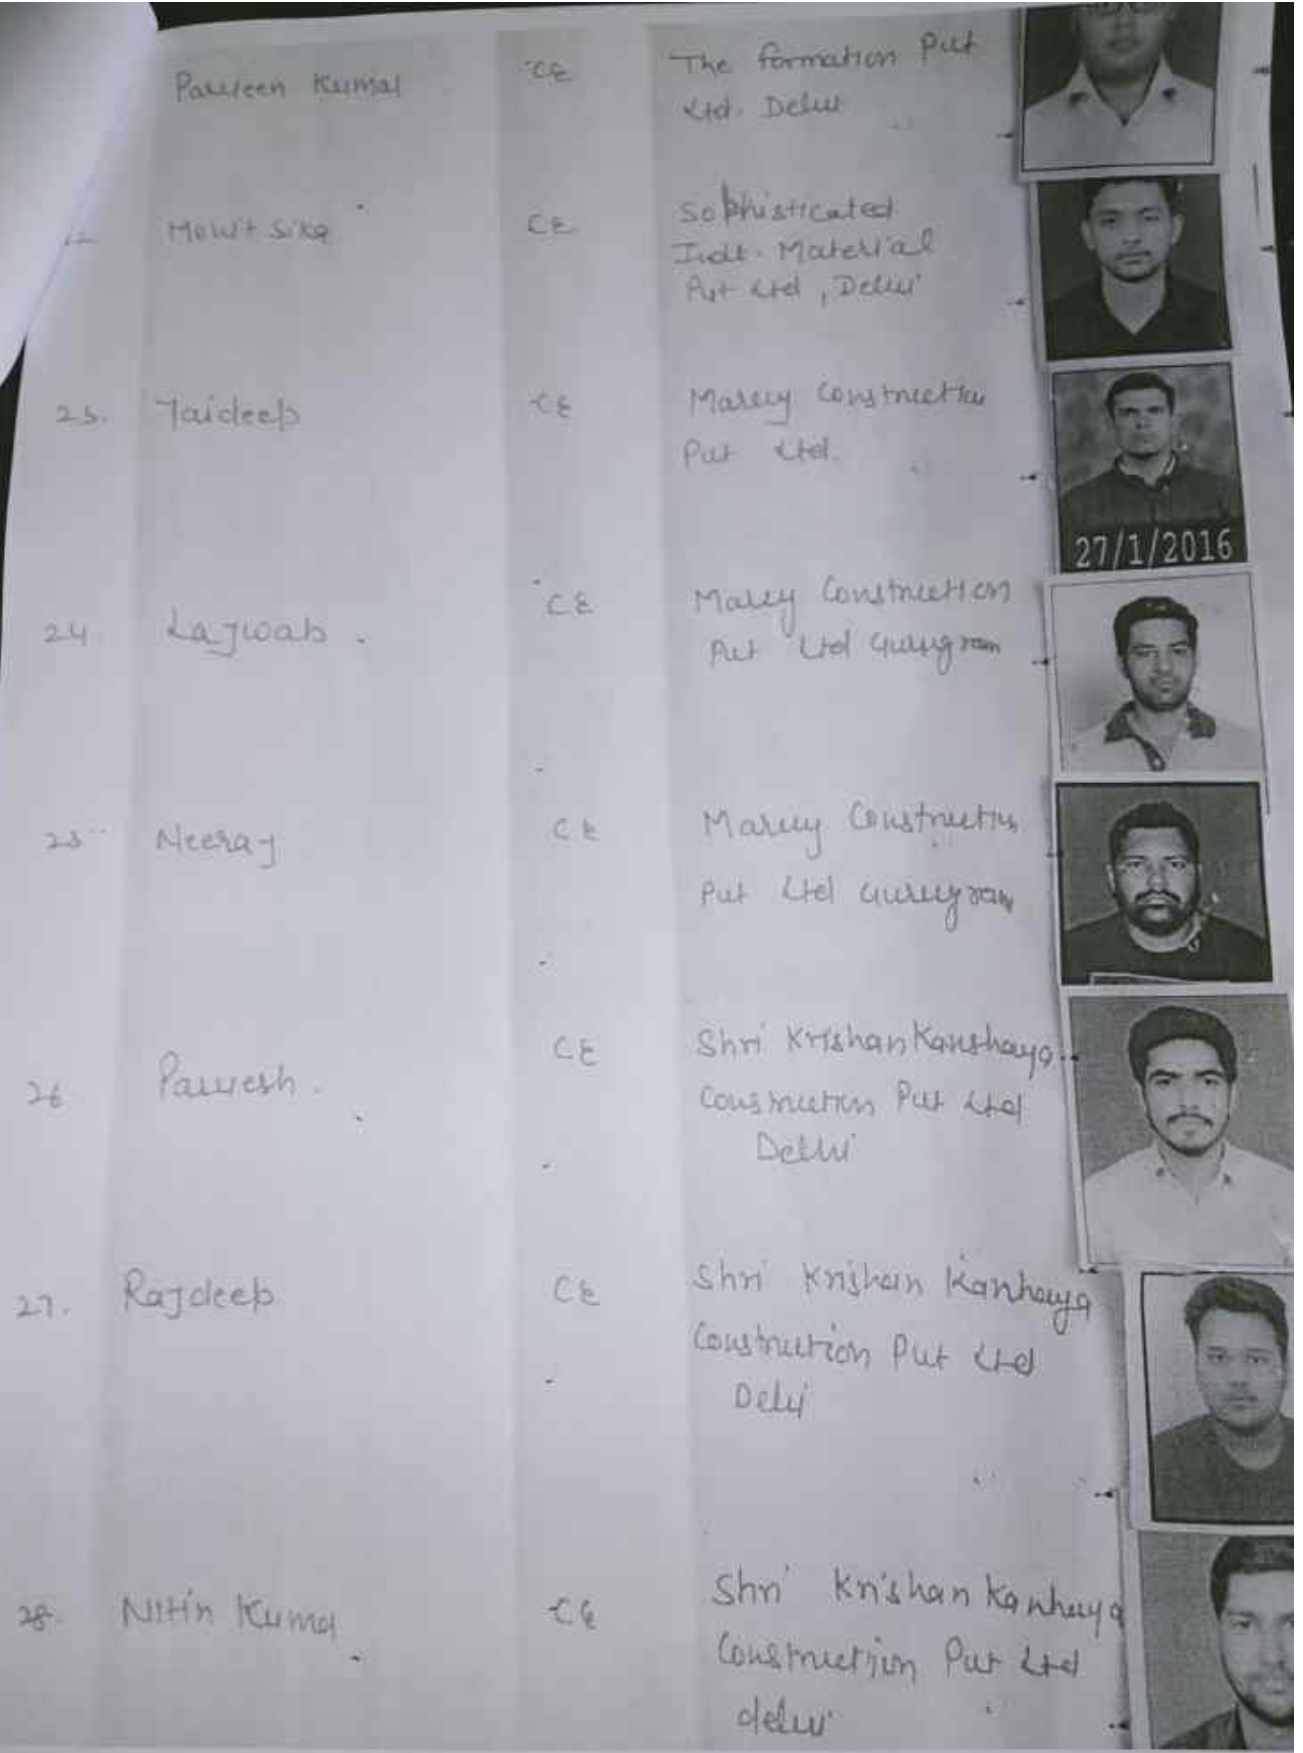 Parveen Kumar CE The formation Pvt
Ltd. Delhi
22 Mohit Sika CE Sophisticated
Indt. Material
Pvt Ltd, Delhi
23. Jaideep CE Construction
Pvt Ltd.
27/1/2016
24. Lajwab. CE Construction
Pvt Ltd Gurugram
25 Neeraj CE Construction
Pvt Ltd Gurugram
26 Parvesh. CE Shri Krishan Kanshaya
Construction Pvt Ltd
Delhi
27. Rajdeep CE Shri Krishan Kanhaya
Construction Pvt Ltd
Delhi
28. Nitin Kumar CE Shri Krishan Kanhaya
Construction Pvt Ltd
delhi